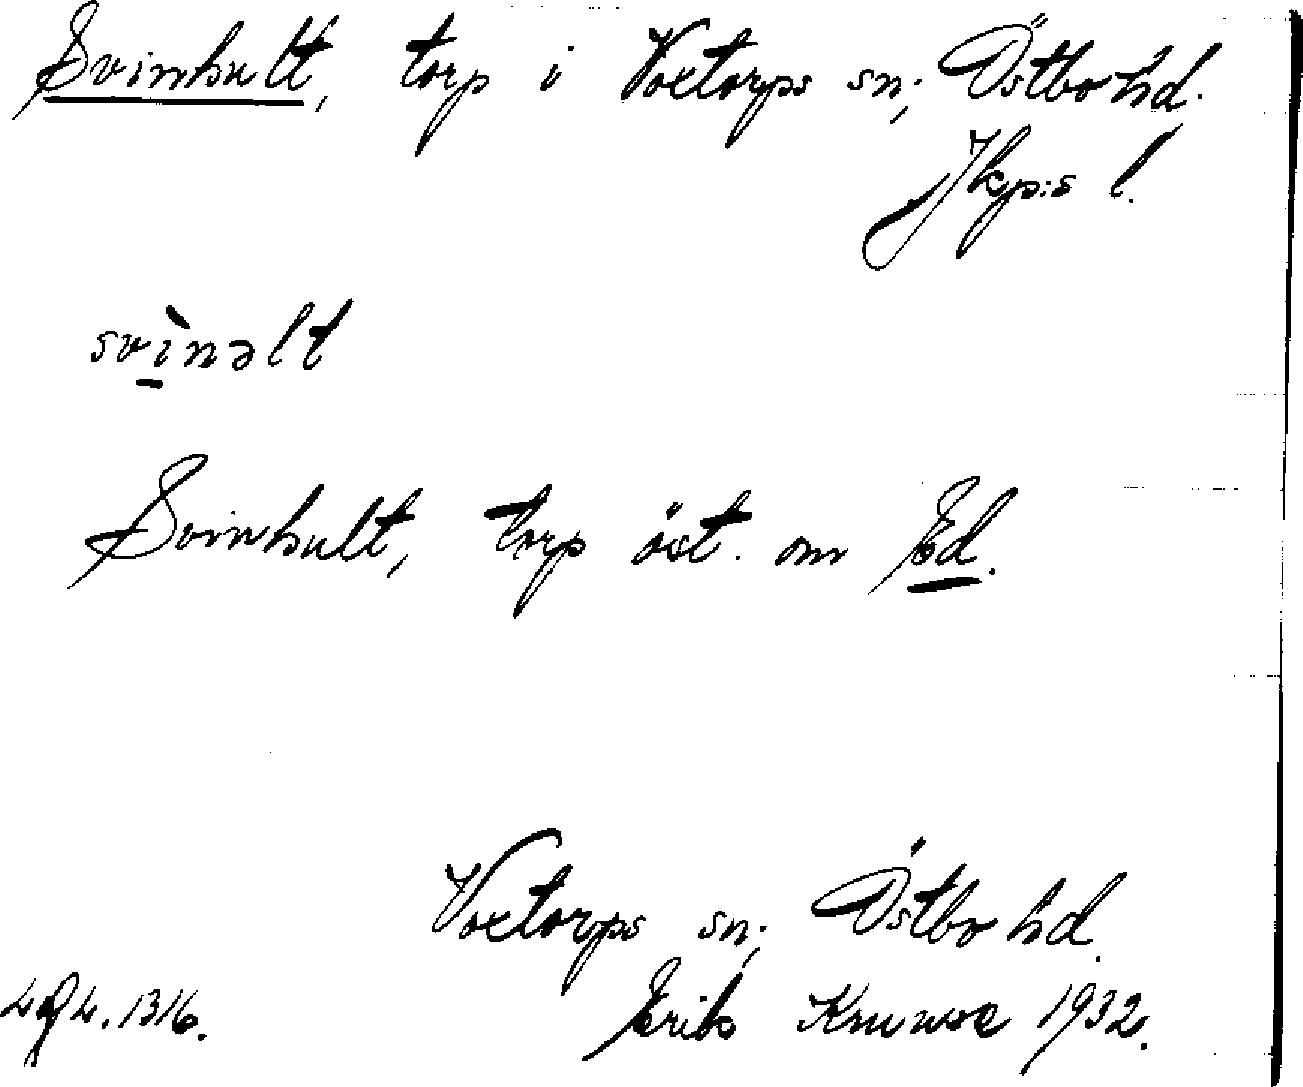 Svinhult, torp i Voxtorps sn; Östbo hd.
Jkp:s l.
svìnəlt
Svinhult, torp öst. om Ed.
Voxtorps sn; Östbo hd.
Erik 1932.